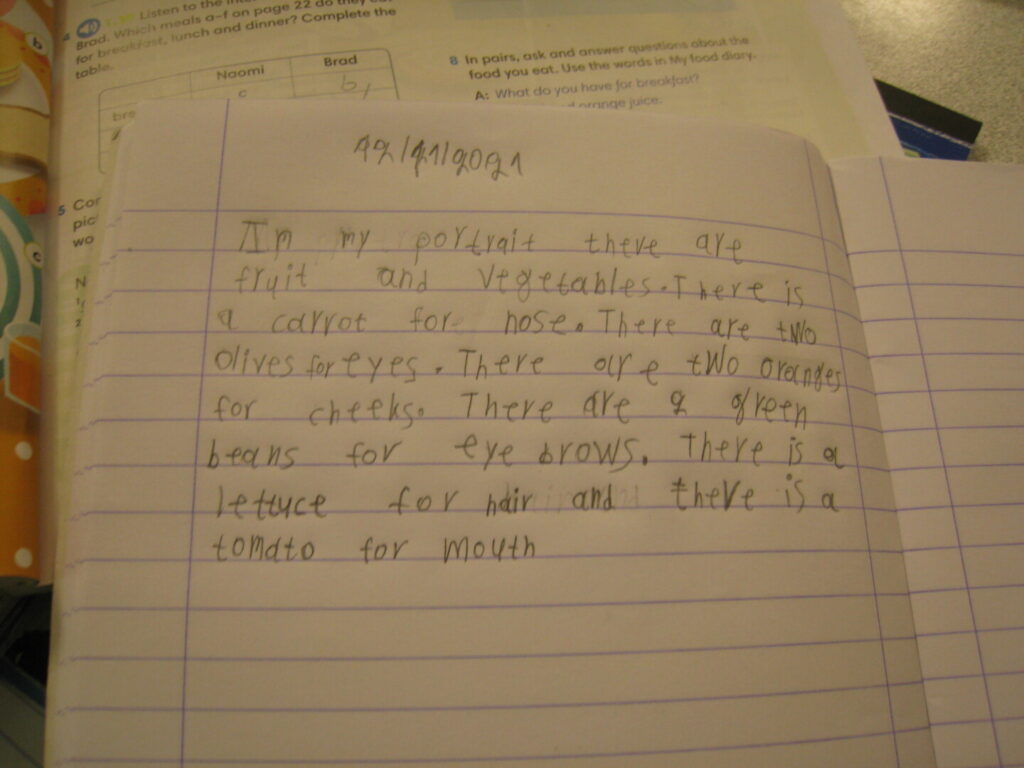 Listen to the
Brad. Which meals a-f on page 22 do they
for breakfast, lunch and dinner? Complete the
table.
Naomi Brad
c b,
bre
5 Cor
pic
wo
N
8 In pairs, ask and answer questions about the
food you eat. Use the words in My food diary.
A: What do you have for breakfast?
orange juice.
b
c
12/11/2021
In my portrait there are
fruit and vegetables. There is
a carrot for nose. There are two
olives for eyes. There are two oranges
for cheeks. There are 2 green
beans for eye brows. There is a
lettuce for hair and there is a
tomato for mouth